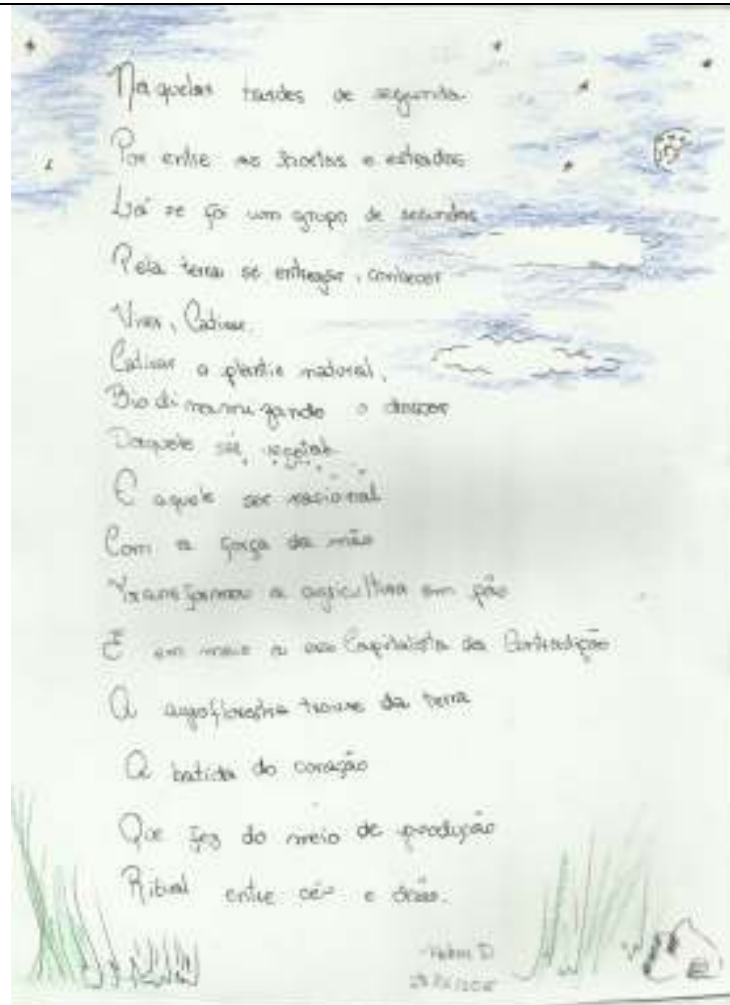 Naquelas tardes de segunda
Por entre as hortas e estradas
Lá se foi um grupo de segundos
Pela terra se entregar, conhecer
Viver, Cativar.
Cativar o plantio natural,
Biodinamizando o
Daquele ser vegetal
E aquele ser racional
Com a força da mão
Transformou a agricultura em pão
E em meio a Capitalista da Contradição
A agrofloresta trouxe da terra
A batida do coração
Que fez do meio de produção
Ritual entre céu e chão.